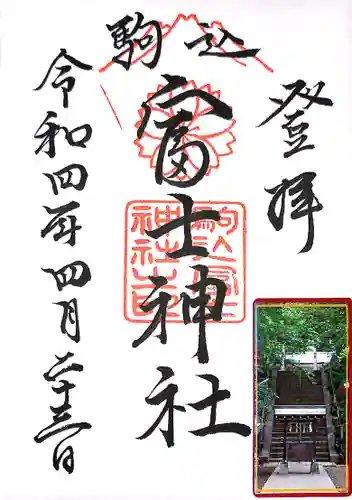 登拝
駒込
富士神社
令和四年四月二十三日
駒込富士神社之印